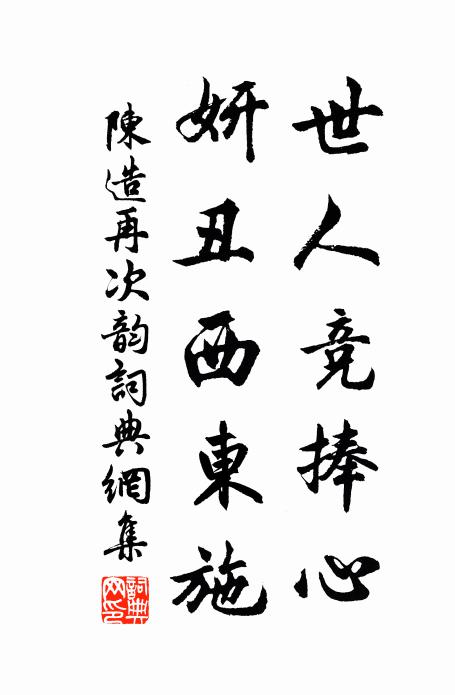 世人竞捧心
妍丑西東施
陳造再次韵詞典網集
詞典網印